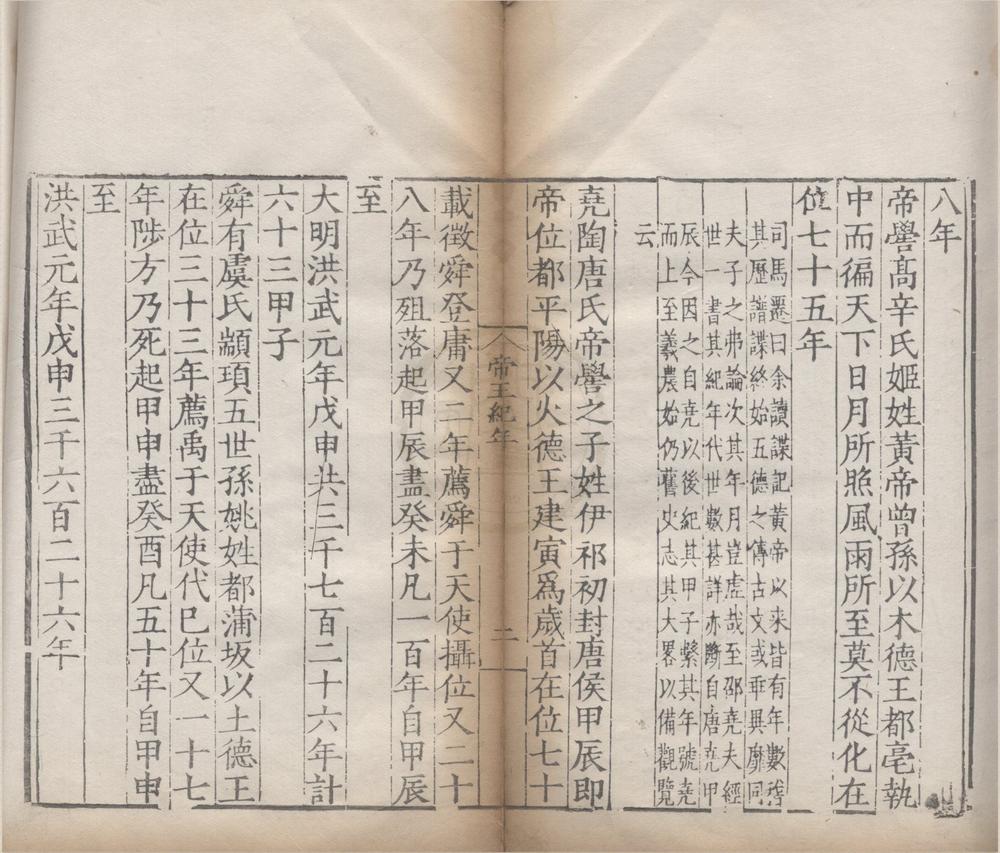 八年
帝嚳髙辛氏姬姓黄帝曽孫以木德王都亳執
中而徧天下日月所照風雨所至莫不從化在
位七十五年
司馬遷曰余讀諜記黄帝以来皆有年數稽
其歷譜諜終始五德之傳古文咸乖異靡同
夫子之弗論次其年月豈虚哉至邵堯夫經
世一書其紀年代世數甚詳亦斷自唐堯甲
辰今因之自堯以後紀其甲子繋其年號堯
而上至羲農始仍舊史志其大畧以備觀覽
云
堯陶唐氏帝嚳之子姓伊祁初封唐侯甲辰即
帝位都平陽以火德王建寅爲歳首在位七十
帝王紀年
二
載徵舜登庸又二年薦舜于天使攝位又二十
八年乃殂落起甲辰盡癸未凡一百年自甲辰
至
大明洪武元年戊申共三千七百二十六年計
六十三甲子
舜有虞氏顓頊五世孫姚姓都蒲坂以土德王
在位三十三年薦禹于天使代巳位又一十七
年陟方乃死起甲申盡癸酉凡五十年自甲申
至
洪武元年戊申三千六百二十六年